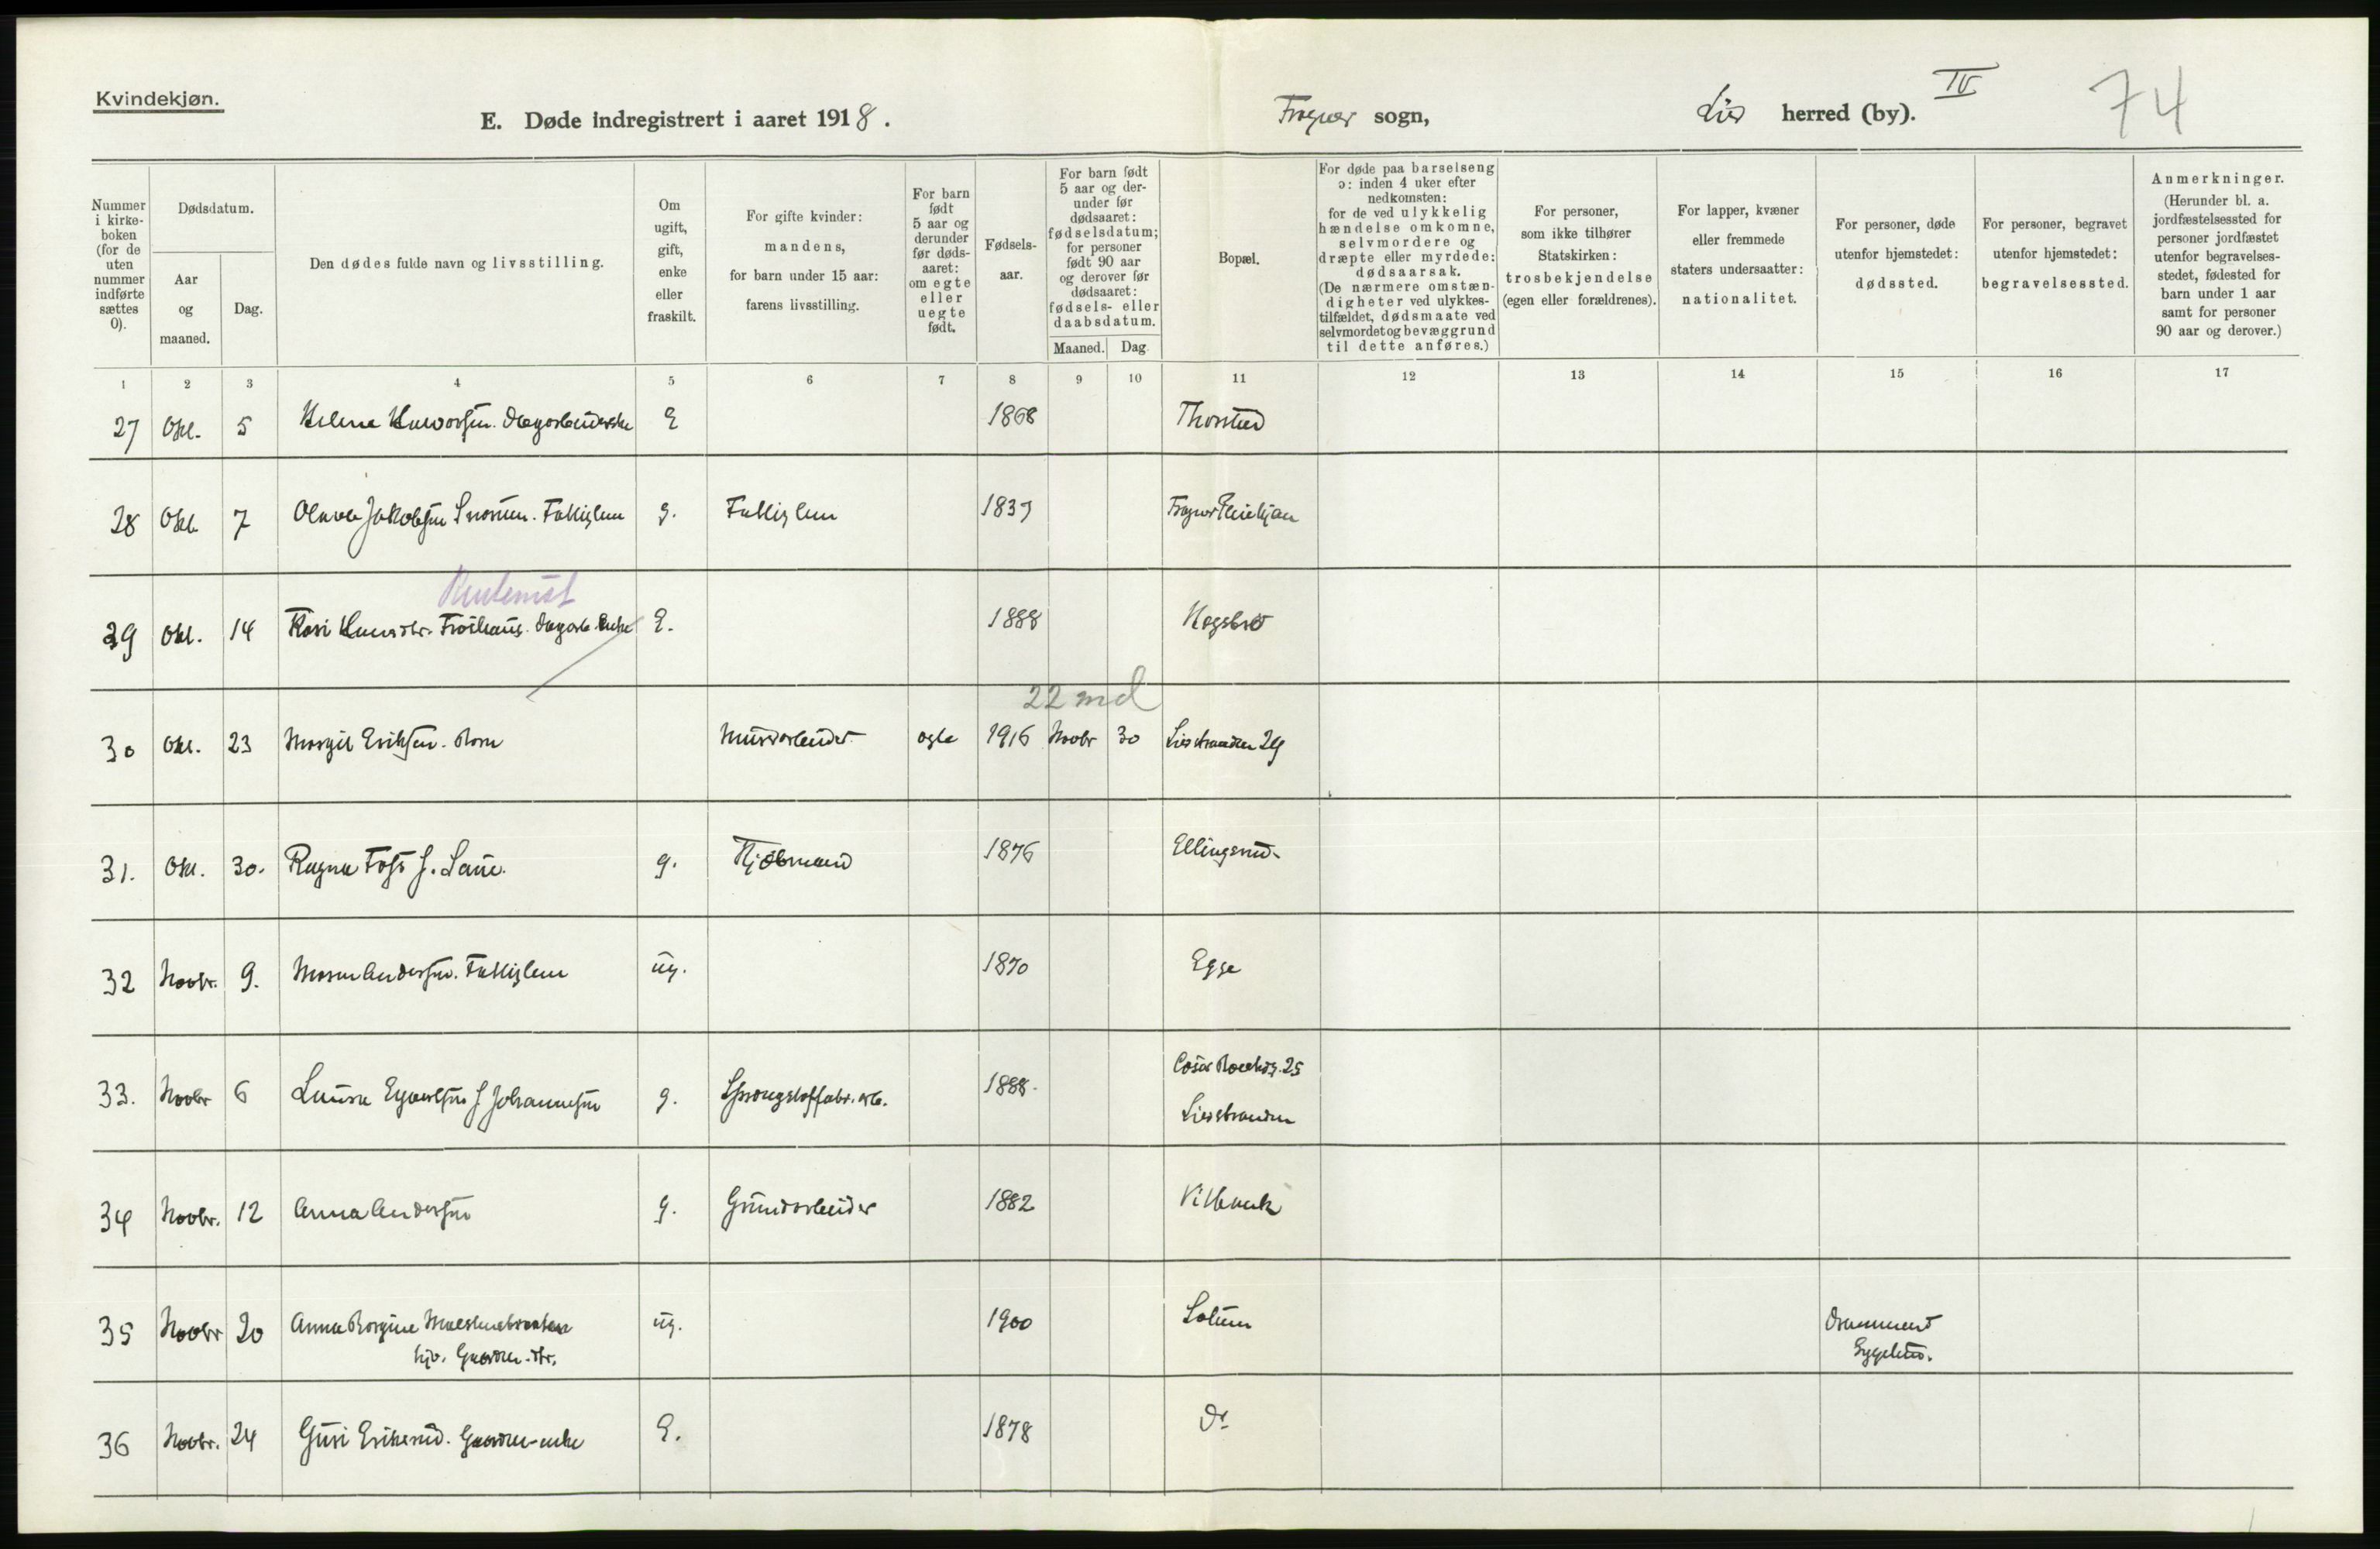 Kvindekjøn.
E. Døde indregistrert i aaret 1918.
Frogner sogn,
Lier herred (by).
IV
74
Nummer i kirke-boken (for de uten nummer indførte sættes 0).
Dødsdatum.
Aar og maaned.
Dag.
Den dødes fulde navn og livsstilling.
Om ugift, gift, enke eller fraskilt.
For gifte kvinder: mandens, for barn under 15 aar: farens livsstilling.
For barn født 5 aar og derunder før døds-aaret: om egte eller uegte født.
Fødsels-aar.
For barn født 5 aar og der-under før dødsaaret: fødselsdatum; for personer født 90 aar og derover før dødsaaret: fødsels- eller daabsdatum.
Maaned.
Dag
Bopæl.
For døde paa barselseng ɔ: inden 4 uker efter nedkomsten: for de ved ulykkelig hændelse omkomne, selvmordere og dræpte eller myrdede: dødsaarsak. (De nærmere omstæn-digheter ved ulykkes-tilfældet, dødsmaate ved selvmordet og bevæggrund til dette anføres.)
For personer, som ikke tilhører Statskirken: trosbekjendelse (egen eller forældrenes).
For lapper, kvæner eller fremmede staters undersaatter: nationalitet.
For personer, døde utenfor hjemstedet: dødssted.
For personer, begravet utenfor hjemstedet: begravelsessted.
Anmerkninger. (Herunder bl. a. jordfæstelsessted for personer jordfæstet utenfor begravelses-stedet, fødested for barn under 1 aar samt for personer 90 aar og derover.)
1 2 3 4 5 6 7 8 9 10 11 12 13 14 15 16 17
27 Okt. 5 Helene Dagarbeiderske E 1868 Thorstad
28 Okt 7 Jakobsen Fattiglem g. Fattiglem 1837 Frogner
29 Okt. 14 Kari E. 1888 Hegsbro
22 md
30 Okt. 23 Margit Eriksen. Barn Murerarbeider egte 1916 Novbr 30 Lierstranden 29
31. Okt. 30. Ragna Foss f. g. Kjøbmand 1876 Ellingsrud
32 Novbr. 9. Maren Andersen. Fattiglem ug. 1870 Egge
33. Novbr 6 f Johannesen g. Sprængstoffabr. arb. 1888. 25
Lierstranden
34 Novbr. 12 Anna Andersen g. Grundarbeider 1882
35 Novbr 20 Anna Borgine ug. 1900 Solum Drammens
Sygehus.
36 Novbr. 24 Guri Eriksrud. E. 1878 Do